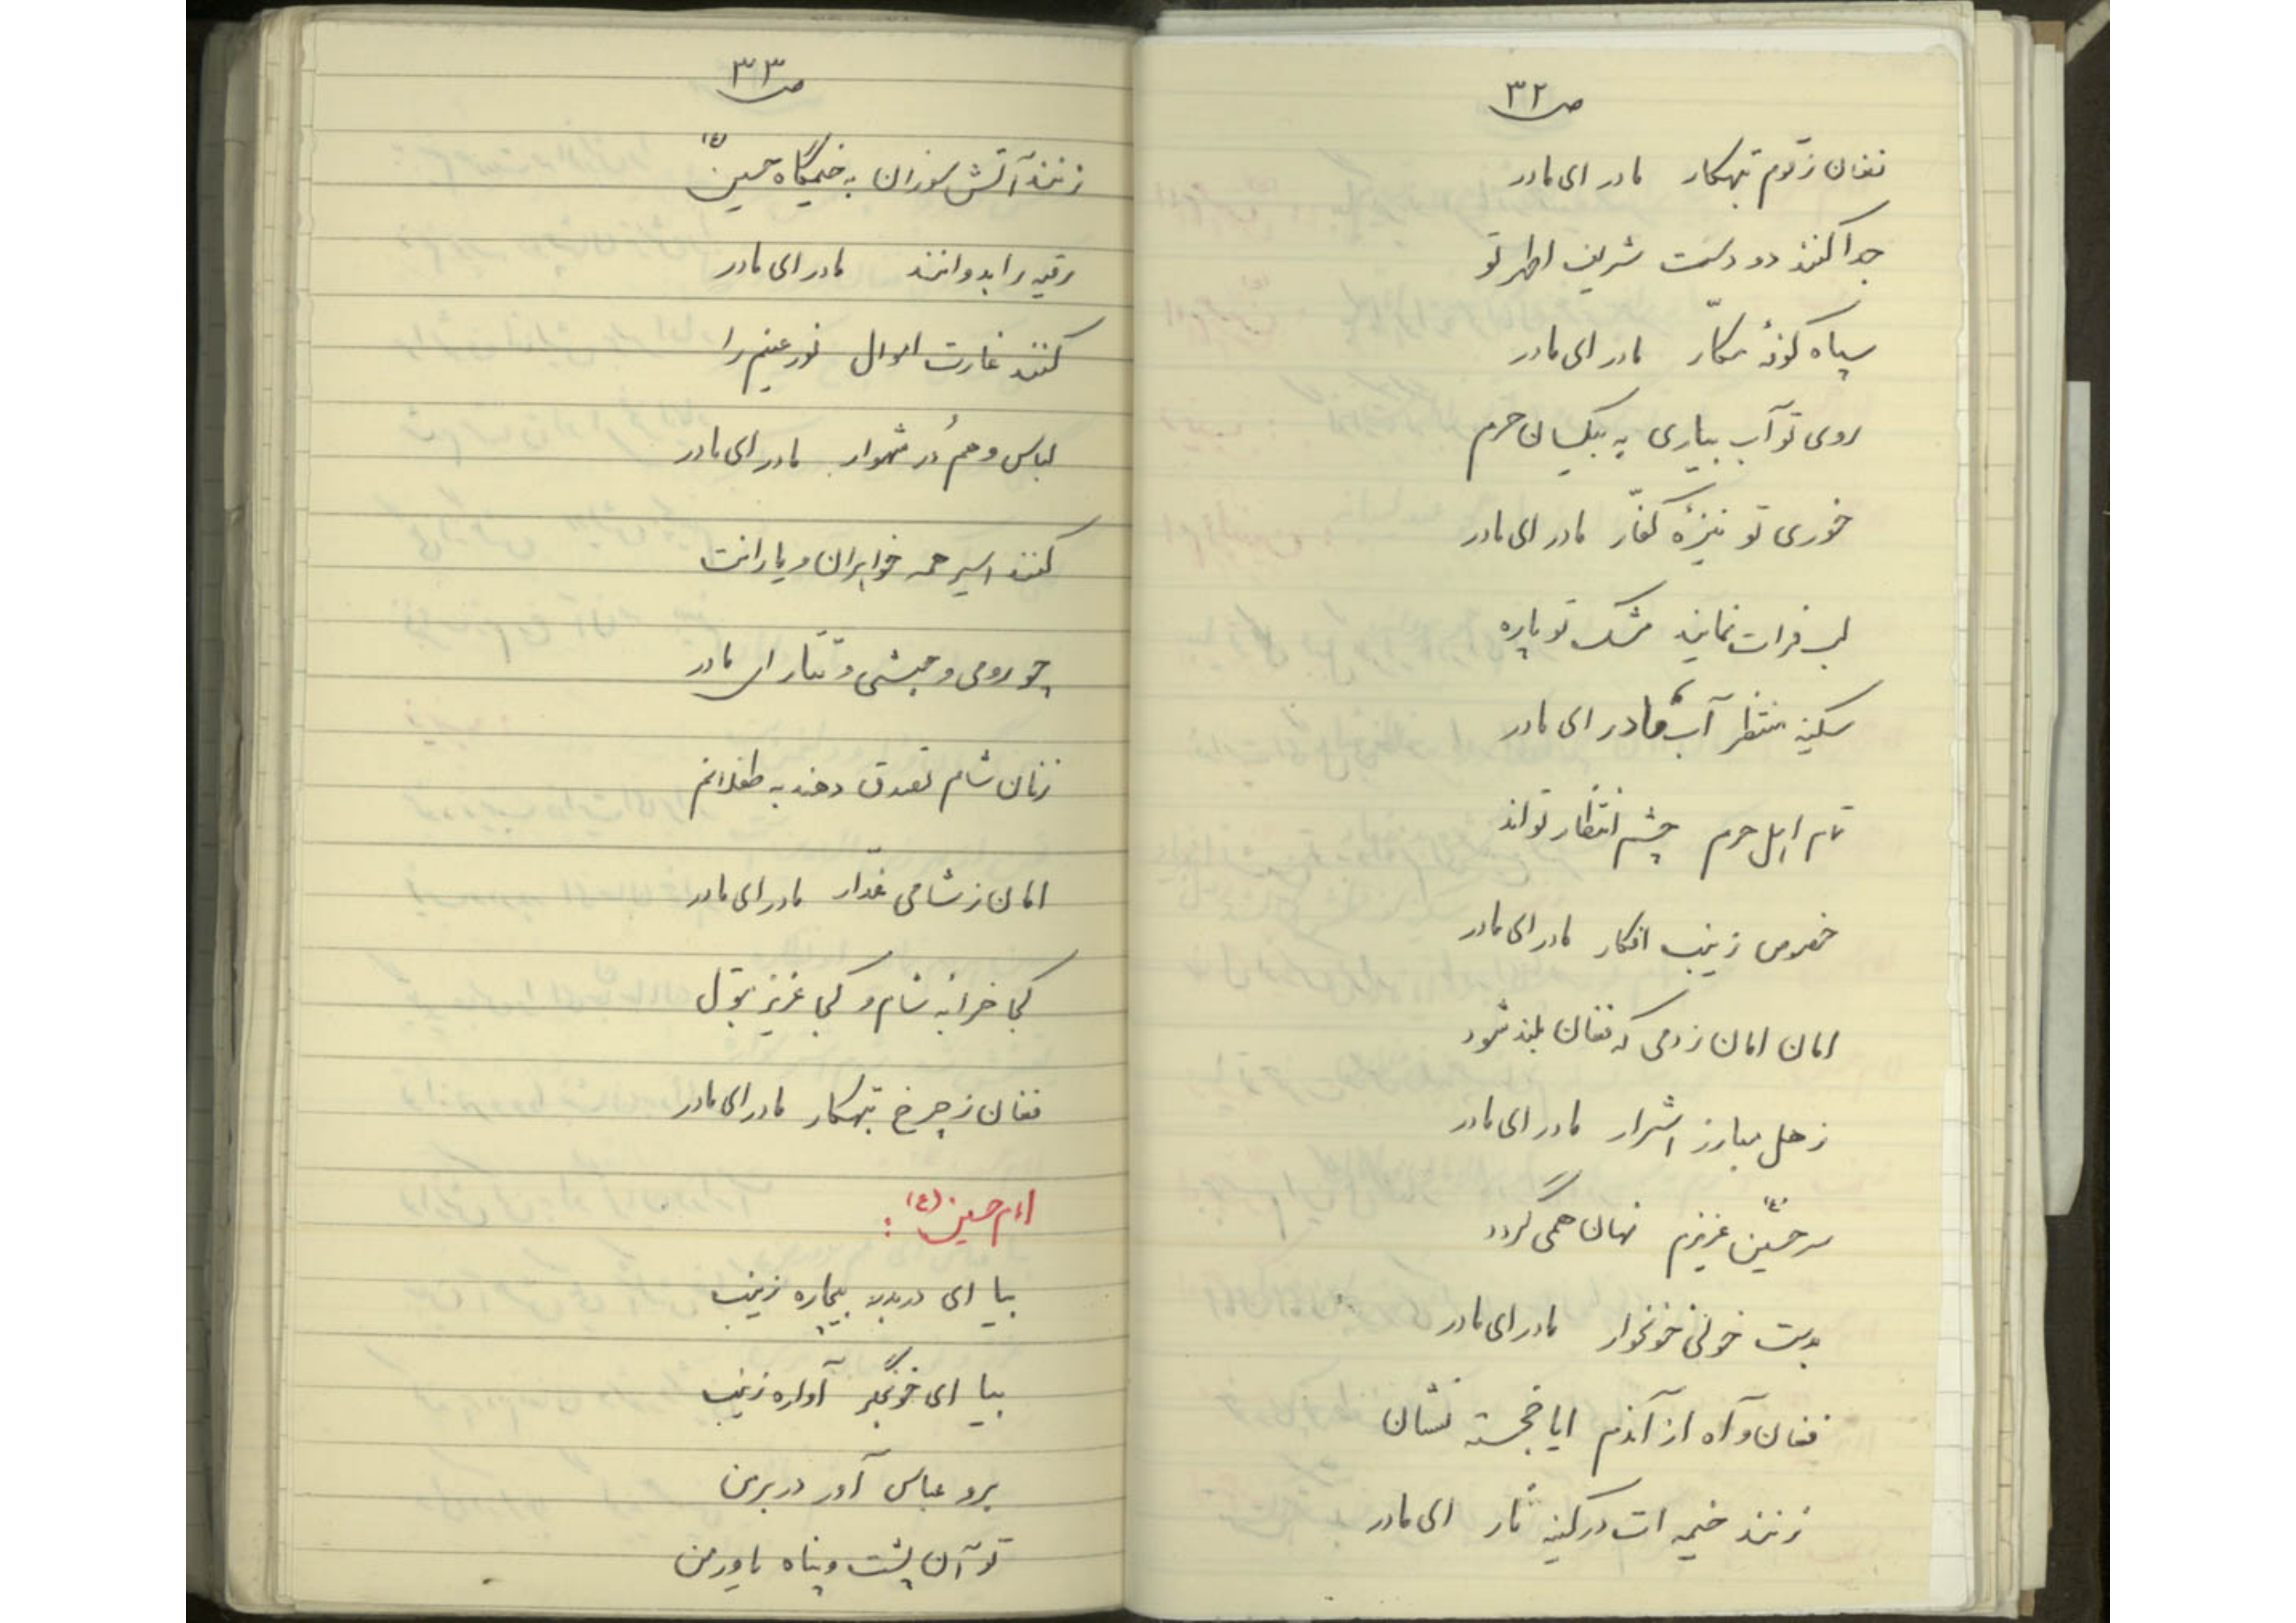 ص ۳۲
فغان ز قوم تبهکار مادر ای مادر
جدا کنند دو دست شریف اطهر تو
سپاه کوفهٔ مکّار مادر ای مادر
روی تو آب بیاری به بیکسان حرم
خوری تو نیزهٔ کفّار مادر ای مادر
لب فرات نمایند مشک تو پاره
سکینه منتظر آب مادر ای مادر
تمام اهل حرم چشم انتظار تواند
خصوص زینب افکار مادر ای مادر
امان امان ز دمی که فغان بلند شود
ز هل مبارز اشرار مادر ای مادر
سر حسین (ع) عزیزم نهان همی گردد
بدست خولی خونخوار مادر ای مادر
فغان و آه از آندم ایا خجسته نشان
زنند خیمه ات در کینه نار ای مادر
ص ۳۳
زنند آتش سوزان به خیمگاه حسین (ع)
رقیه را بدوانند مادر ای مادر
کنند غارت اموال نور عینم را
لباس و هم دُر شهوار مادر ای مادر
کنند اسیر همه خواهران و یارانت
چو رومی و حبشی و تتار ای مادر
زنان شام تصدق دهند به طفلانم
امان ز شامی غدّار مادر ای مادر
کجا خرابه شام و کجا عزیز بتول
فغان ز چرخ تبهکار مادر ای مادر
امام حسین (ع) :
بیا ای دربدر بیچاره زینب
بیا ای خونجگر آواره زینب
برو عباس آور در بر من
تو آن پشت و پناه یاور من